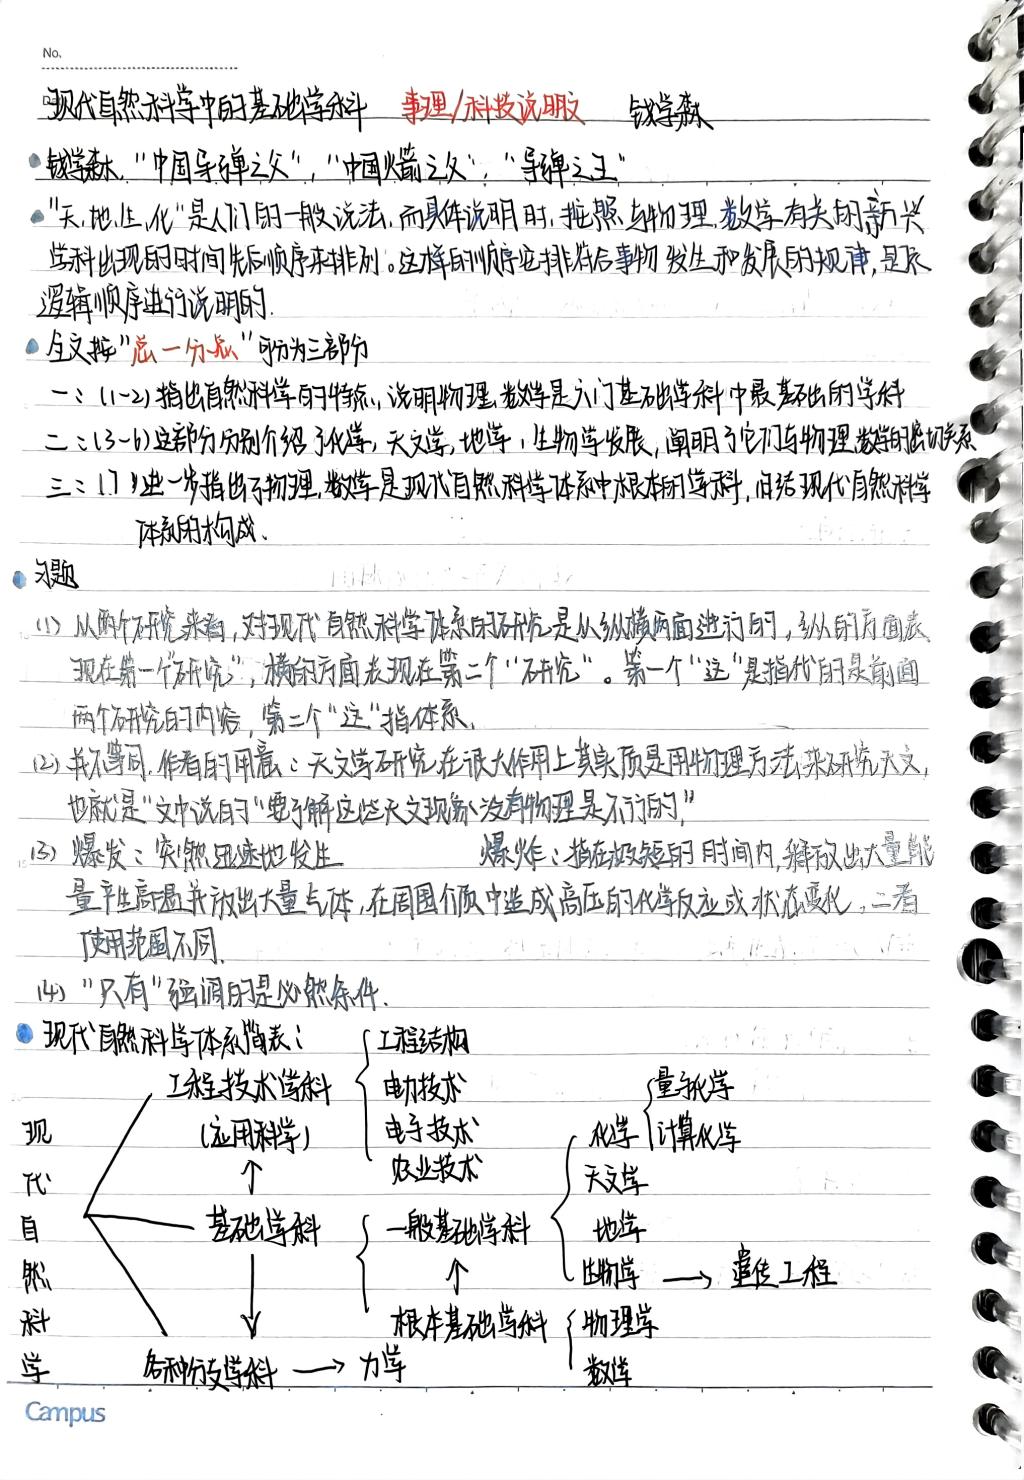 No.
现代自然科学中的基础学科 事理/科技说明文 钱学森
钱学森,"中国导弹之父","中国火箭之父","导弹之王"
"天,地,生,化"是人们的一般说法,而具体说明时,按照与物理,数学有关的新兴
学科出现的时间先后顺序来排列。这样的顺序安排符合事物发生和发展的规律,是
逻辑顺序进行说明的.
全文按"总一分总"可分为三部分
一:(1-2)指出自然科学的特点,说明物理,数学是六门基础学科中最基础的学科
二:(3-6)这部分分别介绍了化学,天文学,地学,生物学发展,阐明了它们与物理,数学的密切关系
三:(7)进一步指出了物理,数学是现代自然科学体系中根本的学科,归结现代自然科学
体系的构成.
习题
(1)从两个研究来看,对现代自然科学体系的研究是从纵横两面进行的,纵的方面表
现在第一个"研究",横的方面表现在第二个"研究"。第一个"这"是指代的是前面
两个研究的内容,第二个"这"指体系.
(2)并不等同,作者的用意:天文学研究在很大作用上其实质是用物理方法来研究天文,
也就是"文中说的"要了解这些天文现象没有物理是不行的"
(3)爆发:突然迅速地发生 爆炸:指在极短的时间内,释放出大量能
量产生高温并放出大量气体,在周围介质中造成高压的化学反应或状态变化,二者
使用范围不同.
(4)"只有"强调的是必然条件.
现代自然科学体系简表:
工程结构
工程技术学科 电力技术 量子化学
现 (应用科学) 电子技术 化学 计算化学
代 ↑ 农业技术 天文学
自 基础学科 一般基础学科 地学
然 ↓ ↑ 生物学 → 遗传工程
科 根本基础学科 物理学
学 各种分支学科 → 力学 数学
Campus